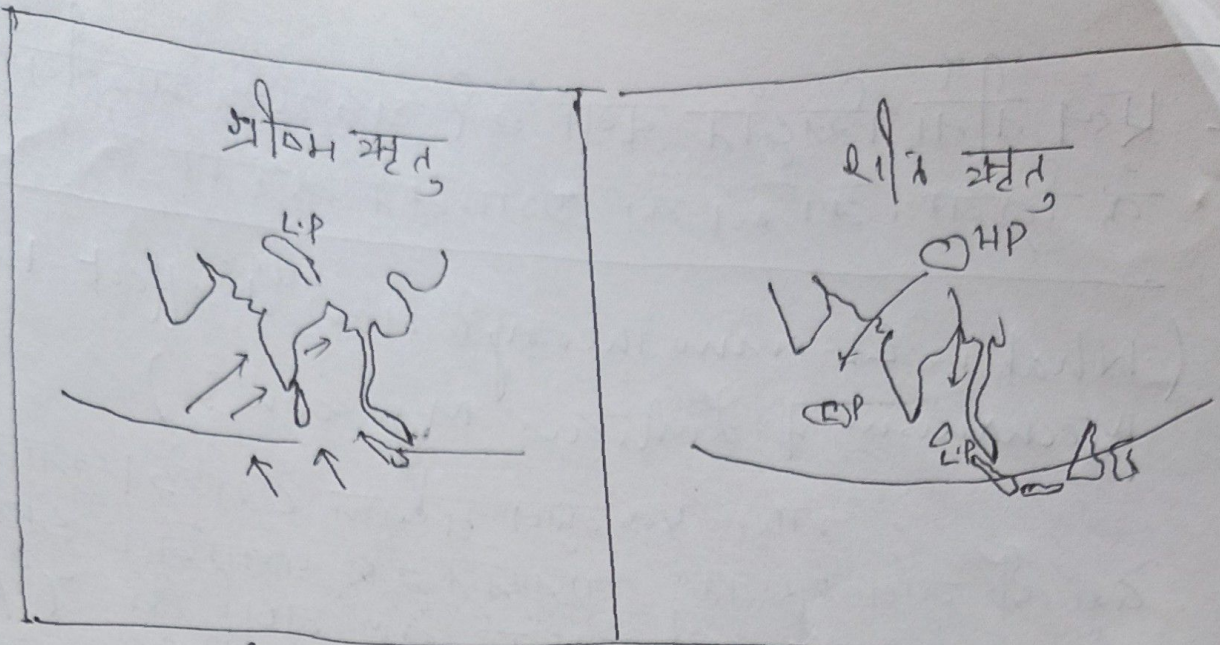 ग्रीष्म ऋतु
L.P
शीत ऋतु
HP
L.P